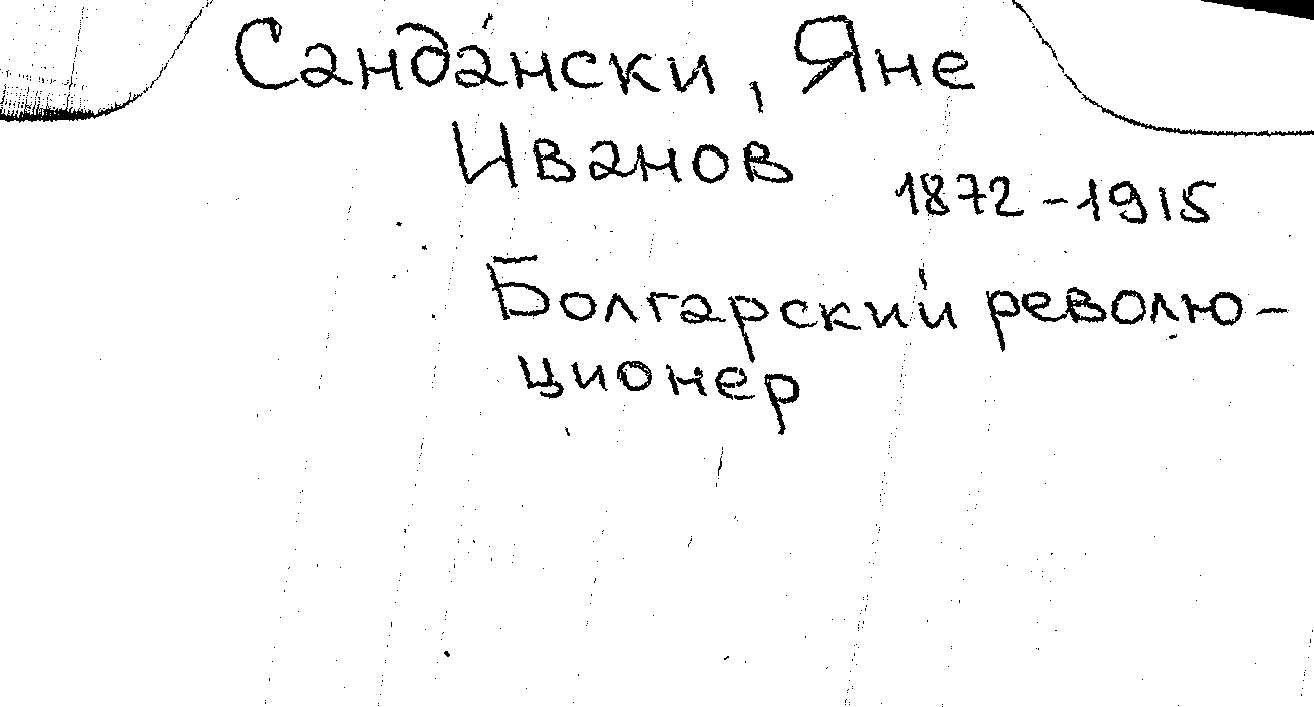 Санда́нски, Яне
Иванов
1872-1915
Болгарский револю-
ционер